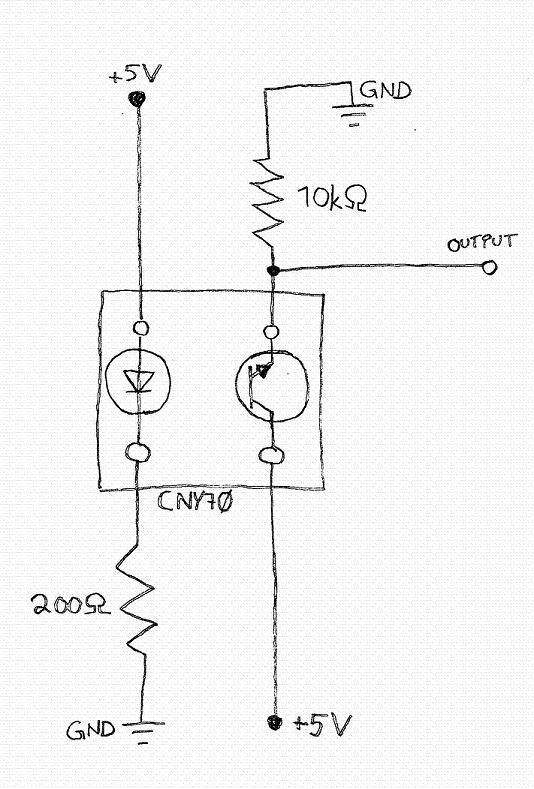 +5V
GND
10kΩ
OUTPUT
CNY70
200Ω
GND
+5V